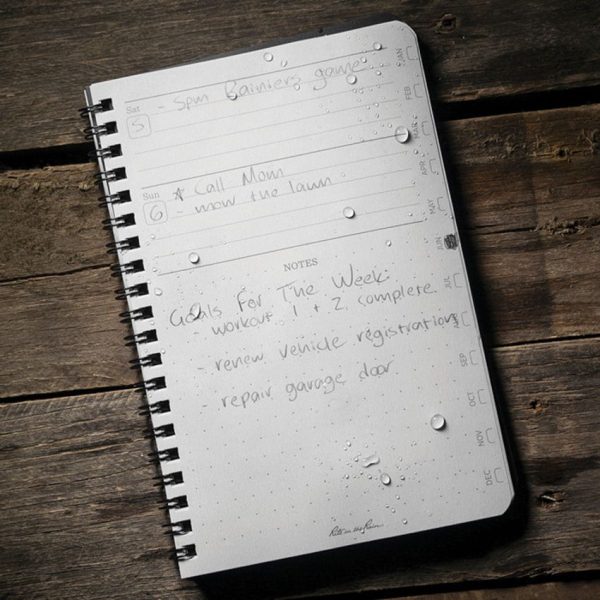 Sat
5
- 5pm Rainiers game
Sun
6
* Call Mom
- mow the lawn
NOTES
Goals For The Week:
- workout 1 + 2 complete
- renew vehicle registration
- repair garage door
Rite in the Rain
JAN
FEB
MAR
APR
MAY
JUN
JUL
AUG
SEP
OCT
NOV
DEC